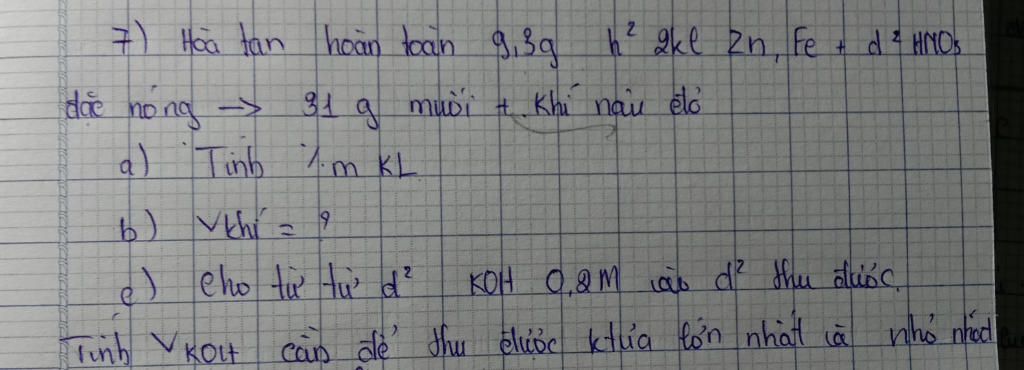 7) Hoà tan hoàn toàn 9,3g h² 2kl Zn, Fe + d² HNO₃
đặc nóng → 31 g muối + khí nâu đỏ
a) Tính %m KL
b) Vkhí = ?
c) cho từ từ d² KOH 0,2M vào d² thu được.
Tính VKOH cần để thu được ktủa lớn nhất và nhỏ nhất